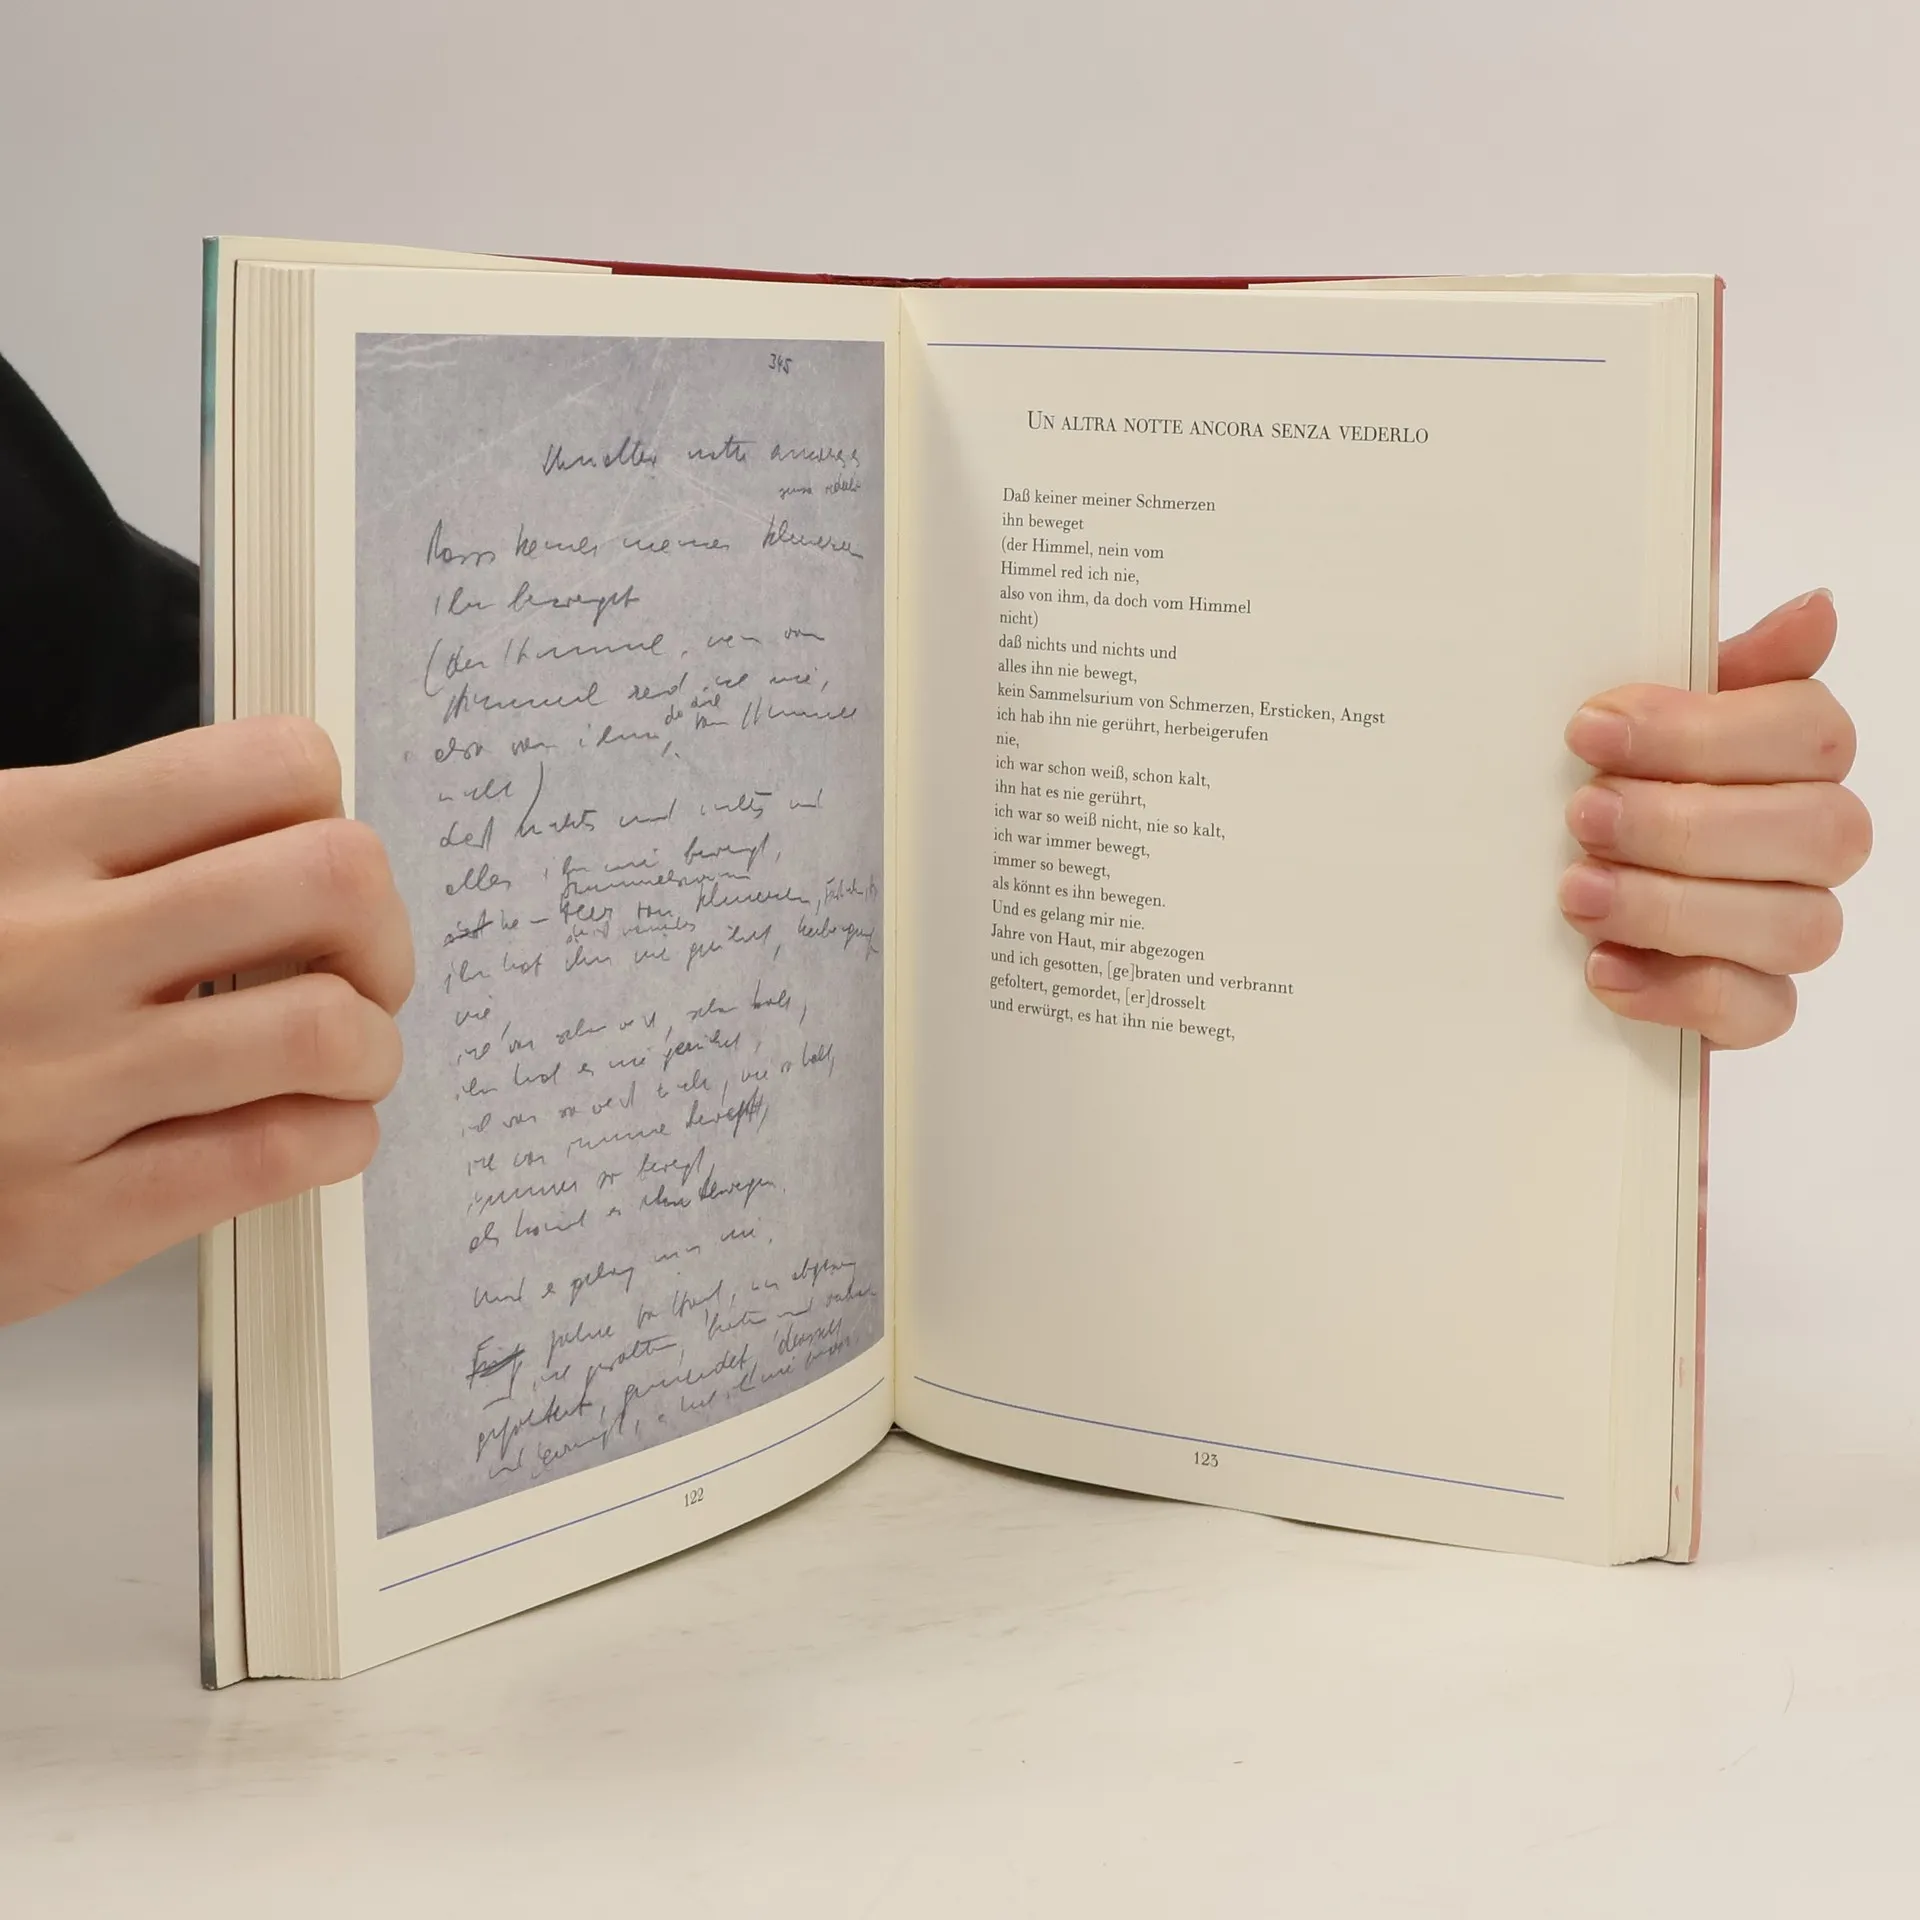 345
Un altra notte ancora
senza vederlo
Dass keiner meiner Schmerzen
ihn bewegt
(der Himmel, nein vom
Himmel red ich nie,
also von ihm, da doch vom Himmel
nicht)
daß nichts und nichts und
alles ihn nie bewegt,
Sammelsurium
von Schmerzen,
ich hab ihn nie gerührt, herbeigerufen
nie,
ich war schon weiß, schon kalt,
ihn hat es nie gerührt,
ich war so weiß nicht, nie so kalt,
ich war immer bewegt,
immer so bewegt,
als könnt es ihn bewegen.
Und es gelang mir nie.
Jahre von Haut, mir abgezogen
und ich gesotten, braten und verbrannt
gefoltert, gemordet, drosselt
und erwürgt, es hat ihn nie bewegt
122
UN ALTRA NOTTE ANCORA SENZA VEDERLO
Daß keiner meiner Schmerzen
ihn beweget
(der Himmel, nein vom
Himmel red ich nie,
also von ihm, da doch vom Himmel
nicht)
daß nichts und nichts und
alles ihn nie bewegt,
kein Sammelsurium von Schmerzen, Ersticken, Angst
ich hab ihn nie gerührt, herbeigerufen
nie,
ich war schon weiß, schon kalt,
ihn hat es nie gerührt,
ich war so weiß nicht, nie so kalt,
ich war immer bewegt,
immer so bewegt,
als könnt es ihn bewegen.
Und es gelang mir nie.
Jahre von Haut, mir abgezogen
und ich gesotten, [ge]braten und verbrannt
gefoltert, gemordet, [er]drosselt
und erwürgt, es hat ihn nie bewegt,
123